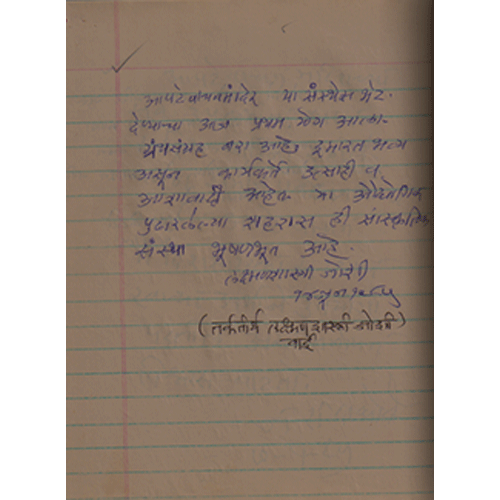 आपटे वाचनमंदिर या संस्थेस भेट
देण्याचा आज प्रथम योग आला.
ग्रंथसंग्रह बरा आहे. इमारत भव्य
असून कार्यकर्ते उत्साही व
आशावादी आहेत. या औद्योगिक
पुढारलेल्या शहरास ही सांस्कृतिक
संस्था भूषणभूत आहे.
लक्ष्मणशास्त्री जोशी
(तर्कतीर्थ लक्ष्मणशास्त्री जोशी
वाई